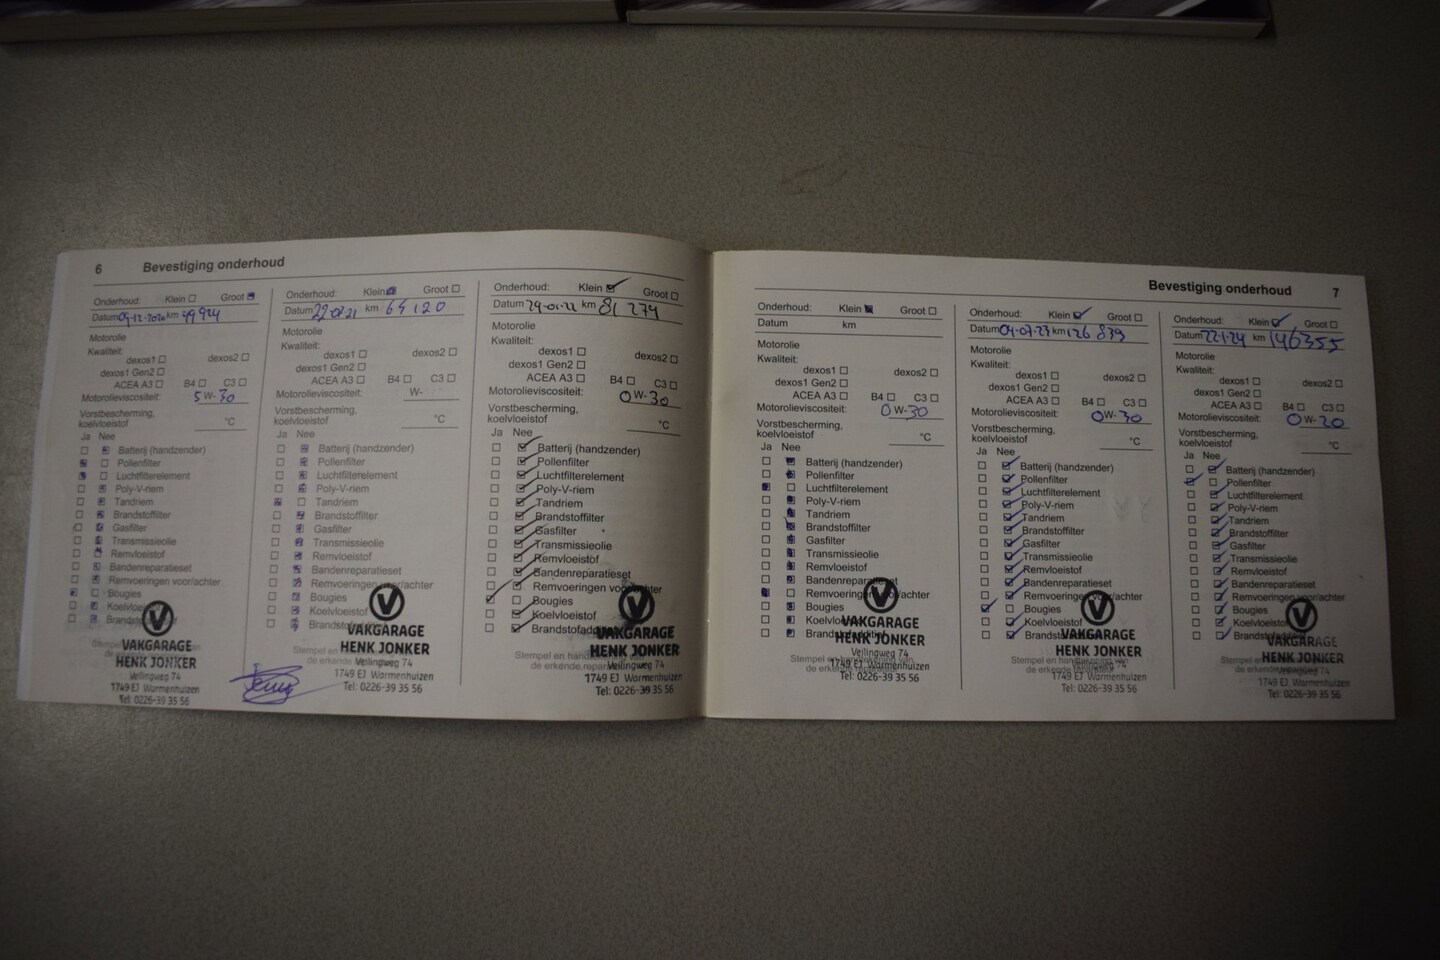 6 Bevestiging onderhoud
Onderhoud: Klein Groot
Datum 09-12-2020 km 49924
Motorolie
Kwaliteit:
dexos1 dexos2
dexos1 Gen2
ACEA A3 B4 C3
Motorolieviscositeit: 5 W-30
Vorstbescherming,
koelvloeistof °C
Ja Nee
Batterij (handzender)
Pollenfilter
Luchtfilterelement
Poly-V-riem
Tandriem
Brandstoffilter
Gasfilter
Transmissieolie
Remvloeistof
Bandenreparatieset
Remvoeringen voor/achter
Bougies
VAKGARAGE
HENK JONKER
Veilingweg 74
1749 EJ Warmenhuizen
Tel: 0226-39 35 56
Onderhoud: Klein Groot
Datum km 64120
Motorolie
Kwaliteit:
dexos1 dexos2
dexos1 Gen2
ACEA A3 B4 C3
Motorolieviscositeit: W-
Vorstbescherming,
koelvloeistof °C
Ja Nee
Batterij (handzender)
Pollenfilter
Luchtfilterelement
Poly-V-riem
Tandriem
Brandstoffilter
Gasfilter
Transmissieolie
Remvloeistof
Bandenreparatieset
Remvoeringen voor/achter
Bougies
Koelvloeistof
VAKGARAGE
HENK JONKER
Veilingweg 74
1749 EJ Warmenhuizen
Tel: 0226-39 35 56
Onderhoud: Klein Groot
Datum 29-01-22 km 81 274
Motorolie
Kwaliteit:
dexos1 dexos2
dexos1 Gen2
ACEA A3 B4 C3
Motorolieviscositeit: 0 W-30
Vorstbescherming,
koelvloeistof °C
Ja Nee
Batterij (handzender)
Pollenfilter
Luchtfilterelement
Poly-V-riem
Tandriem
Brandstoffilter
Gasfilter
Transmissieolie
Remvloeistof
Bandenreparatieset
Remvoeringen voor/achter
Bougies
Koelvloeistof
Brandstofadditief
VAKGARAGE
HENK JONKER
Veilingweg 74
1749 EJ Warmenhuizen
Tel: 0226-39 35 56
Bevestiging onderhoud 7
Onderhoud: Klein Groot
Datum km
Motorolie
Kwaliteit:
dexos1 dexos2
dexos1 Gen2
ACEA A3 B4 C3
Motorolieviscositeit: 0 W-30
Vorstbescherming,
koelvloeistof °C
Ja Nee
Batterij (handzender)
Pollenfilter
Luchtfilterelement
Poly-V-riem
Tandriem
Brandstoffilter
Gasfilter
Transmissieolie
Remvloeistof
Bandenreparatieset
Remvoeringen voor/achter
Bougies
Koelvloeistof
Brandstofadditief
VAKGARAGE
HENK JONKER
Veilingweg 74
1749 EJ Warmenhuizen
Tel: 0226-39 35 56
Onderhoud: Klein Groot
Datum 04-07-23 km 126 839
Motorolie
Kwaliteit:
dexos1 dexos2
dexos1 Gen2
ACEA A3 B4 C3
Motorolieviscositeit: 0 W-30
Vorstbescherming,
koelvloeistof °C
Ja Nee
Batterij (handzender)
Pollenfilter
Luchtfilterelement
Poly-V-riem
Tandriem
Brandstoffilter
Gasfilter
Transmissieolie
Remvloeistof
Bandenreparatieset
Remvoeringen voor/achter
Bougies
Koelvloeistof
VAKGARAGE
HENK JONKER
Veilingweg 74
1749 EJ Warmenhuizen
Tel: 0226-39 35 56
Onderhoud: Klein Groot
Datum 22-1-24 km 146355
Motorolie
Kwaliteit:
dexos1 dexos2
dexos1 Gen2
ACEA A3 B4 C3
Motorolieviscositeit: 0 W-20
Vorstbescherming,
koelvloeistof °C
Ja Nee
Batterij (handzender)
Pollenfilter
Luchtfilterelement
Poly-V-riem
Tandriem
Brandstoffilter
Gasfilter
Transmissieolie
Remvloeistof
Bandenreparatieset
Remvoeringen voor/achter
Bougies
Koelvloeistof
VAKGARAGE
HENK JONKER
Veilingweg 74
1749 EJ Warmenhuizen
Tel: 0226-39 35 56